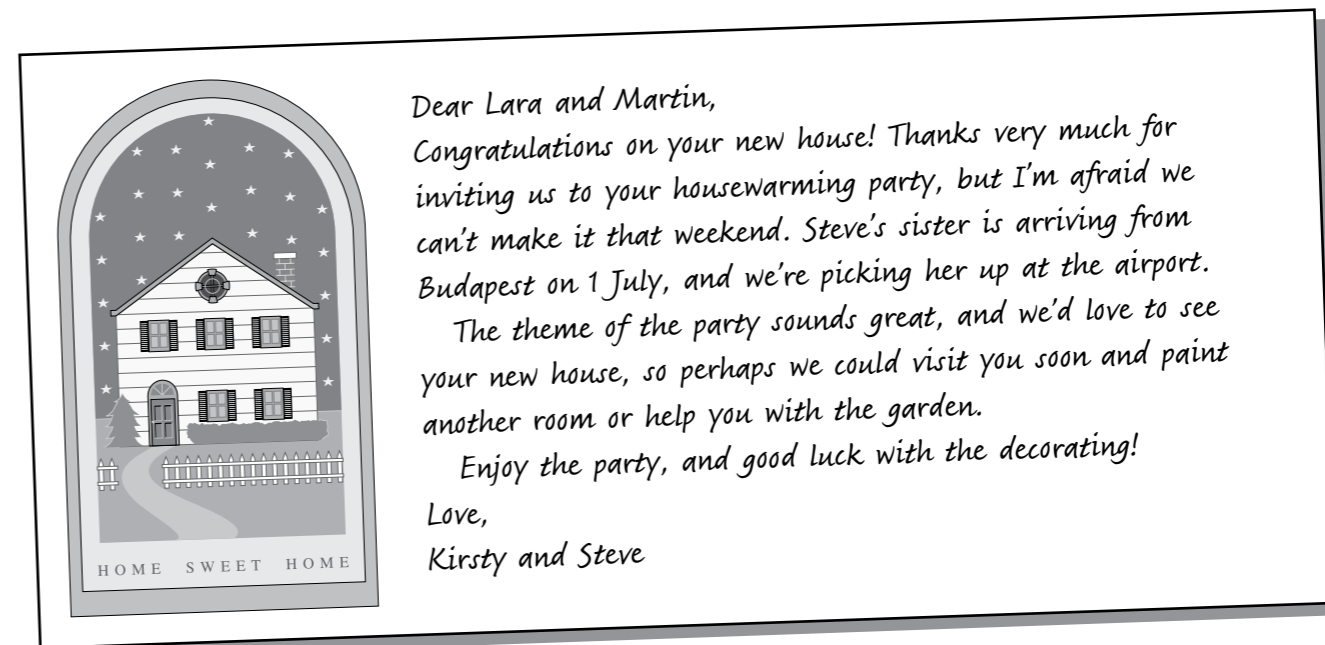 HOME SWEET HOME
Dear Lara and Martin,
Congratulations on your new house! Thanks very much for
inviting us to your housewarming party, but I'm afraid we
can't make it that weekend. Steve's sister is arriving from
Budapest on 1 July, and we're picking her up at the airport.
The theme of the party sounds great, and we'd love to see
your new house, so perhaps we could visit you soon and paint
another room or help you with the garden.
Enjoy the party, and good luck with the decorating!
Love,
Kirsty and Steve